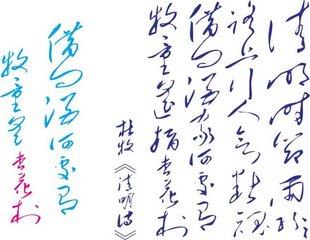 清明时节雨纷纷
路上行人欲断魂
借问酒家何处有
牧童遥指杏花村
杜牧《清明诗》
借问酒何处有
牧童杏花村